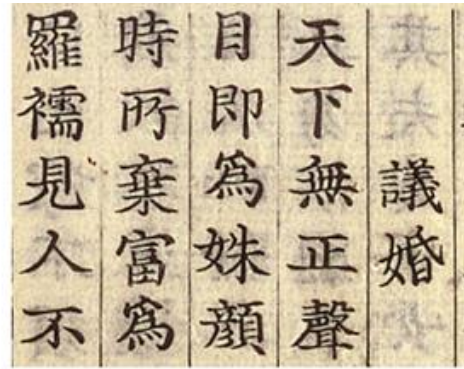 議婚
天下無正聲
目即爲姝顔
時所棄富爲
羅襦見人不